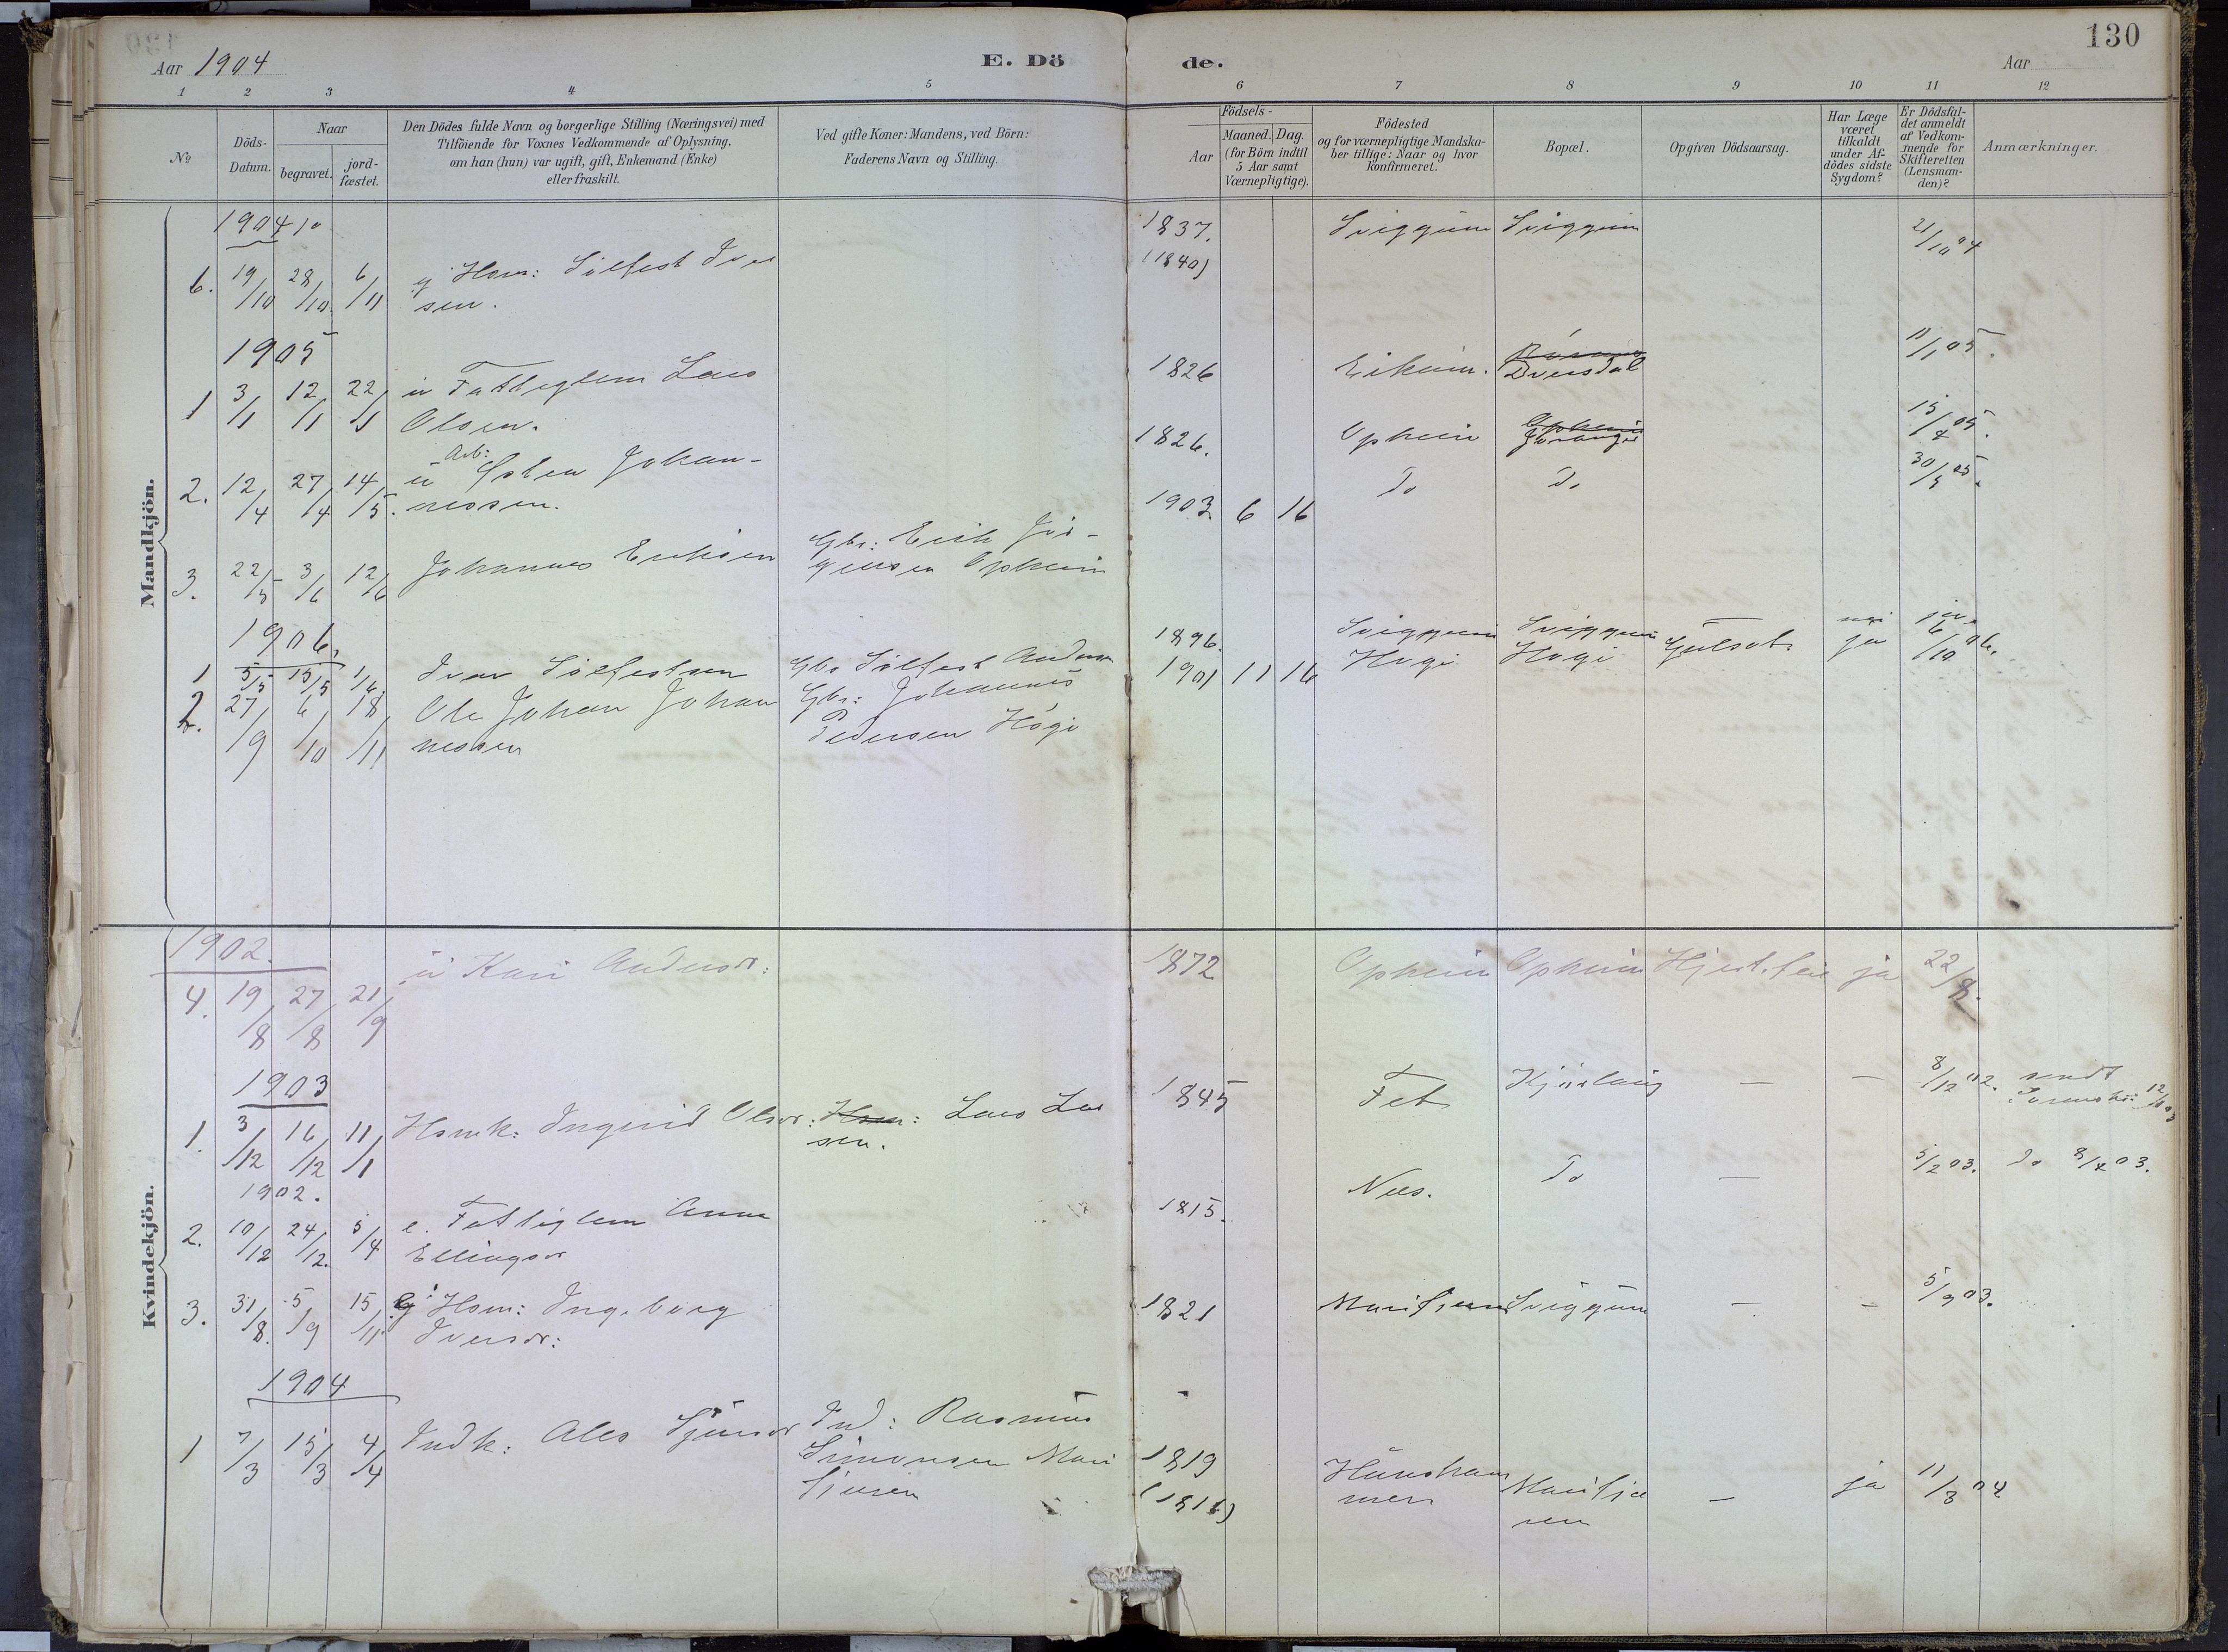 130
Aar 1904 E. Dö de. Aar
1 2 3 4 5 6 7 8 9 10 11 12
№
Döds-Datum.
Naar
begravet.
jord-fæstet.
Den Dödes fulde Navn og borgerlige Stilling (Næringsvei) med
Tilföiende for Voxnes Vedkommende af Oplysning,
om han (hun) var ugift, gift, Enkemand (Enke)
eller fraskilt.
Ved gifte Koner: Mandens, ved Börn:
Faderens Navn og Stilling.
Födsels-
Aar
Maaned. Dag.
(for Börn indtil
5 Aar samt
Værnepligtige).
Födested
og for værnepligtige Mandska-
ber tillige: Naar og hvor
Konfirmeret.
Bopæl.
Opgiven Dödsaarsag.
Har Læge
været
tilkaldt
under Af-
dödes sidste
Sygdom?
Er Dödsfal-
det anmeldt
af Vedkom-
mende for
Skifteretten
(Lensman-
den)?
Anmærkninger.
Mandkjön.
1904
6. 19/10 28/10 6/11 g Hsm: Sölfest Iver 1837. Sviggum Sviggum 21/10 04
sen. (1840)
1905
1 3/1 12/1 22/1 u Fattiglem Lars 1826 Eikum. Dversdal 11/1 05.
Olsen.
Arb:
2. 12/4 27/4 14/5. u Esten Johan- 1826. Opheim Opheim 15/4 05.
nessen.
3. 22/5 3/6 12/6 Johannes Eriksen Gbr: Erik Jör- 1903 6 16 Do Do 30/5 05.
gensen Opheim
1906.
1 5/5 15/5 1/6 Iver Sölfestsen Gbr Sölfest Anders 1896. Sviggum Sviggum — nei ja
2. 27/9 6/10 18/11 Ole Johan Johan Gbr: Johannes 1901 11 16 Högi Högi Gulsot ja 6/10 06.
nessen Pedersen Högi
Kvindekjön.
1902.
4. 19/8 27/8 21/9 u Kari Andersdr: 1872 Opheim Opheim Hjertefeil ja 22/8.
1903
1. 3/12 16/12 11/1 Hsmk: Ingerid Olsdr: Hsm: Lars Lar 1845 Fet Kjörlaug — — 8/12 02. sendt
sen.
1902.
2. 10/12 24/12. 5/4 e. Fattiglem Anna 1815. Nes. Do — 5/2 03. do 8/4 03.
Ellingsdr
3. 31/8. 5/9 15/11 g Hsm: Ingeborg 1821 Marifjæren Sviggum — — 5/9 03.
Iversdr:
1904
1 7/3 15/3 4/4 Indk: Ales Sjursdr Ind: Rasmus 1819 Haunsham Marifjæ — ja 11/3 04.
Simonsen Mari (1816) mer ren
fjæren